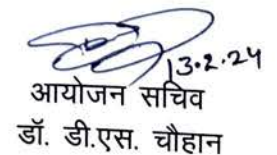 13.2.24
आयोजन सचिव
डॉ. डी.एस. चौहान